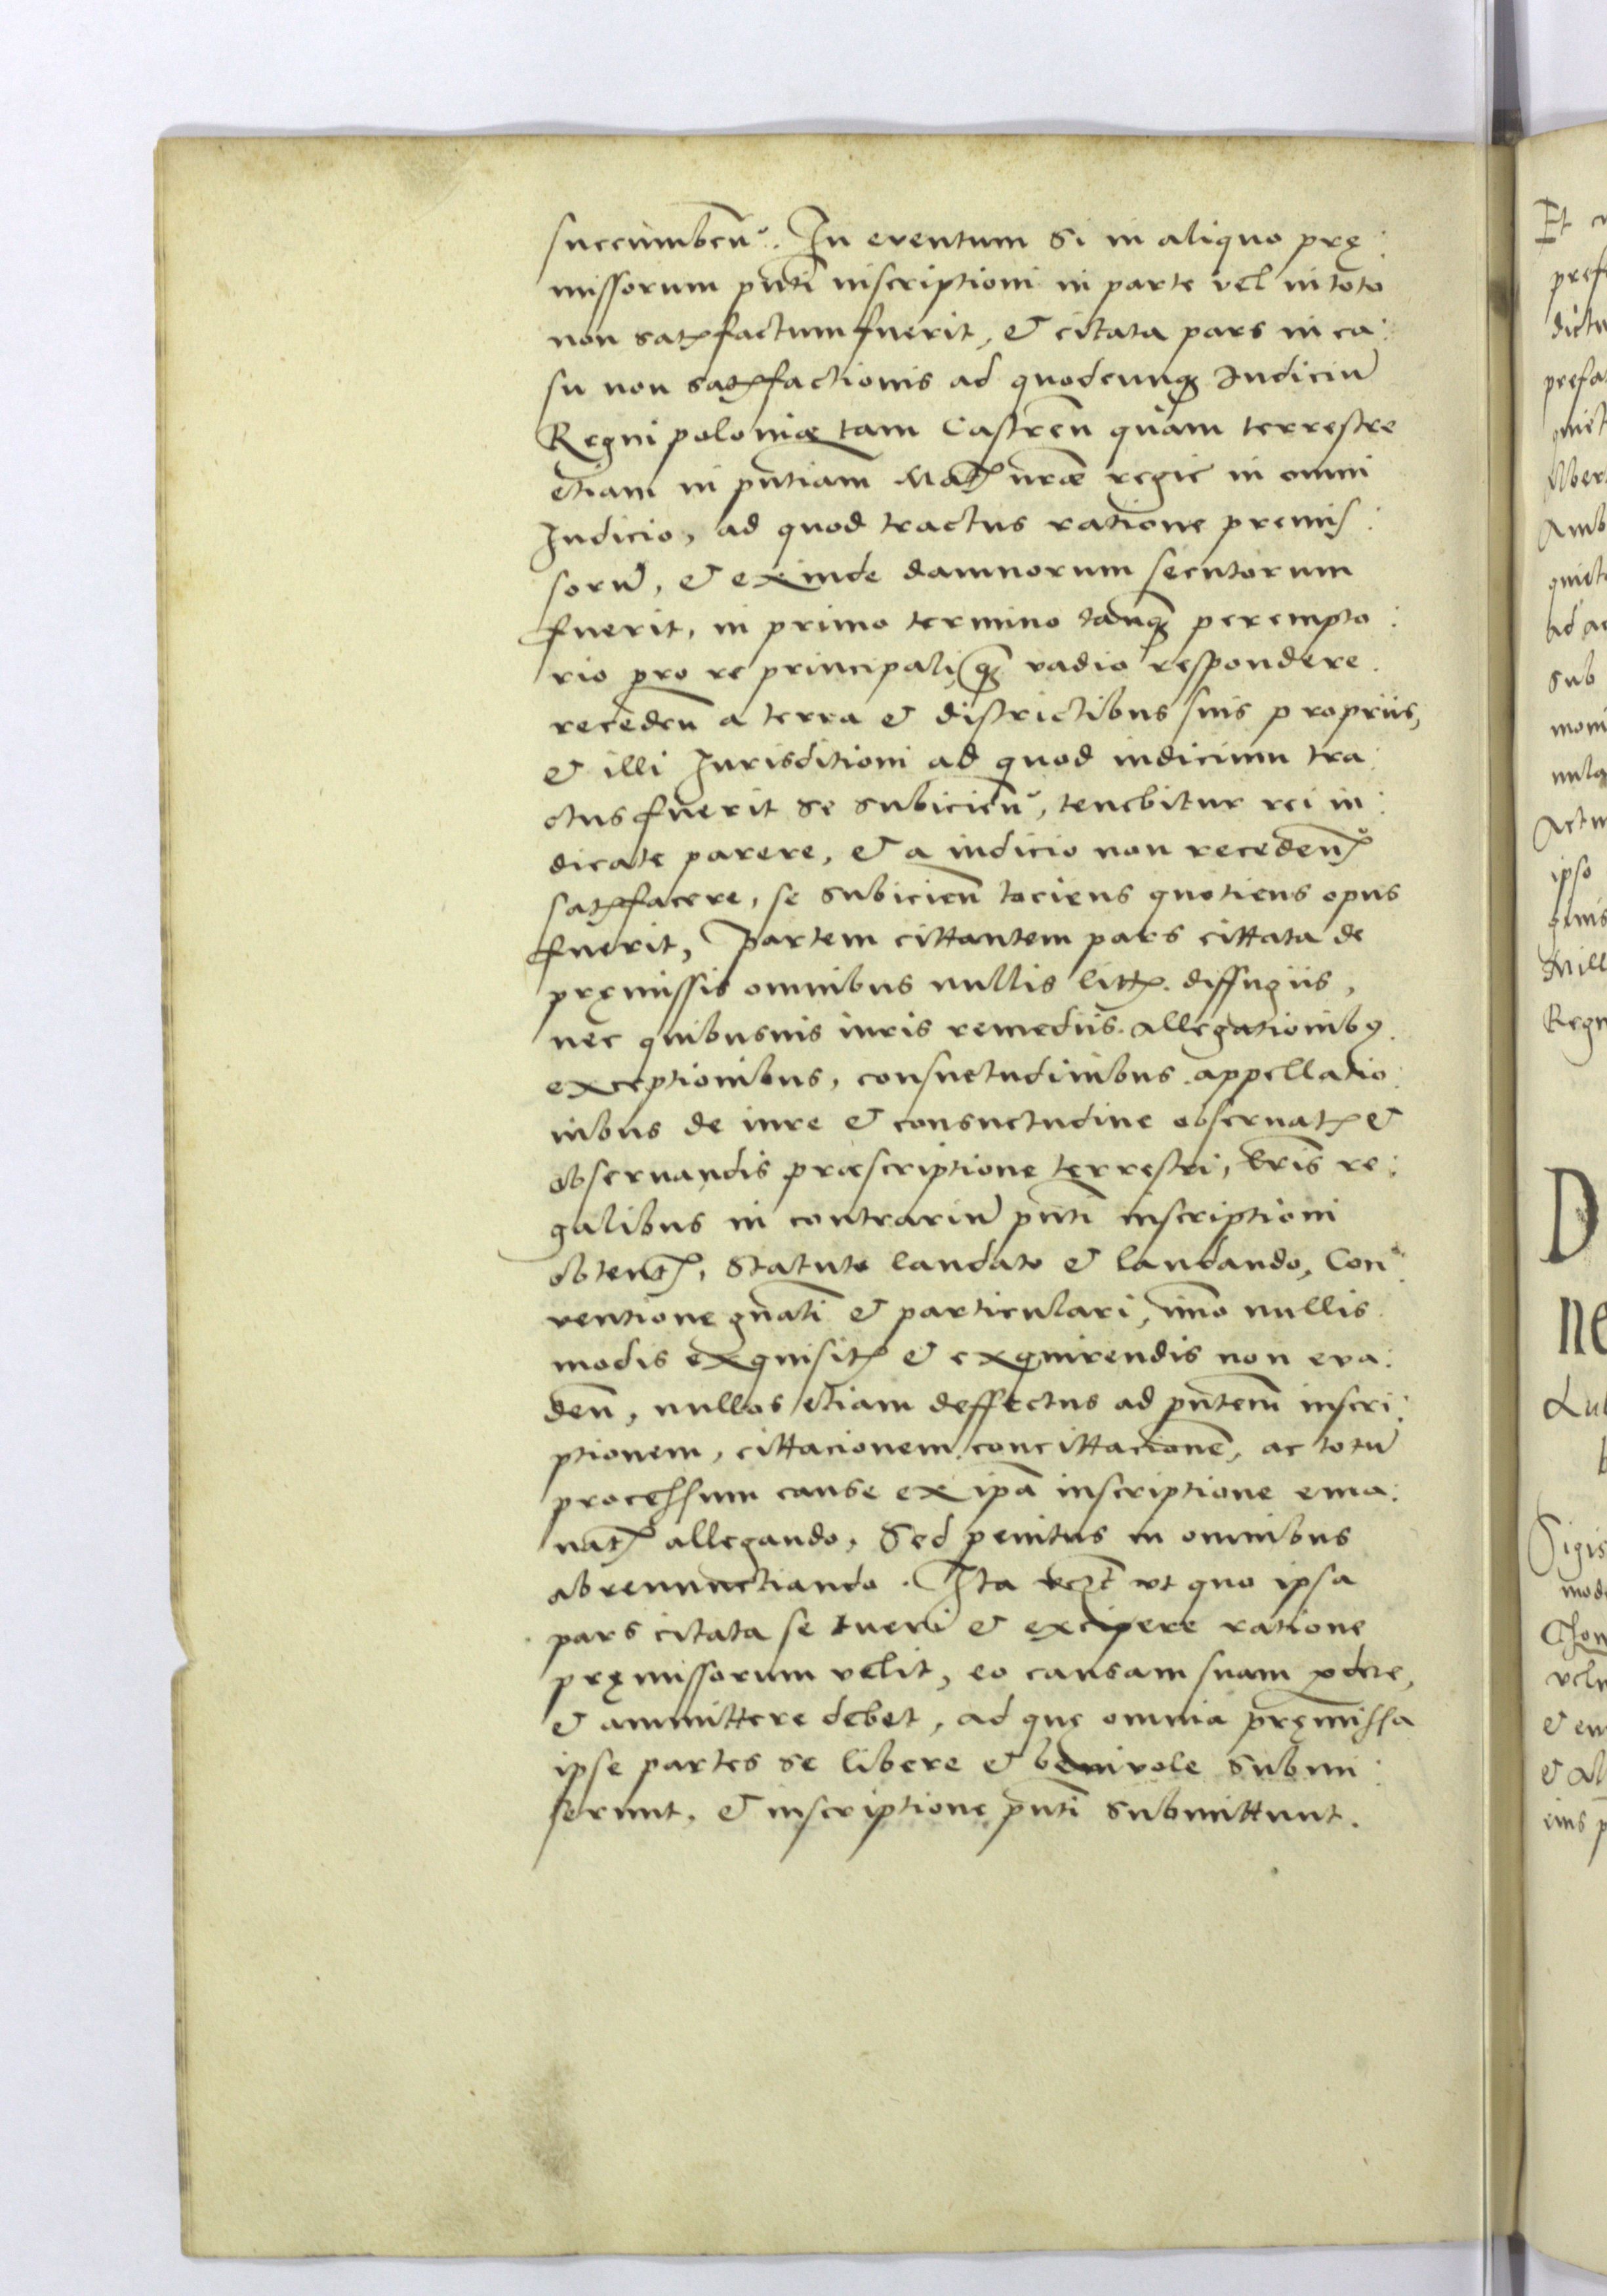 succumben. In eventum si in aliquo prę:
missorum pnti inscriptioni in parte vel in toto
non satisfactum fuerit, & citata pars in ca:
su non satisfactionis ad quodcunq Iudiciu
Regni poloniæ tam Castren quam terrestre
etiam in pntiam Matis nræ regie in omni
Iudicio, ad quod tractus ratione premis:
soru, & exinde damnorum secutorum
fuerit, in primo termino tanq perempto:
rio pro re principali, q vadio respondere.
receden a terra & districtibus suis propriis,
& illi Iurisditioni ad quod iudicium tra:
ctus fuerit se subicien, tenebitur rei iu:
dicate parere, & a iudicio non receden
satisfacere, se subicien tociens quotiens opus
fuerit, Partem cittantem pars cittata de
pręmissis omnibus nullis litis. diffugiis,
nec quibusuis iuris remediis. allegationibq.
exceptionibus, consuetudinibus. appellatio:
nibus de iure & consuetudine obseruatis &
obseruandis præscriptione terrestri, lris re:
galibus in contrariu pnti inscriptioni
obtentis, Statuto laudato & laudando, Con:
ventione gnali & particulari, imo nullis
modis exquisitis & exquirendis non eva:
den, nullos etiam deffectus ad pntem inscri:
ptionem, cittacionem, concittacione, ac totu
processum cause ex ipa inscriptione ema:
natis allegando, Sed penitus in omnibus
abrenunctiando. Ita ut quo ipsa
pars citata se tueri & excipere ratione
pręmissorum velit, eo causam suam pdere,
& ammittere debet, ad quę omnia pręmissa
ipse partes se libere & benivole submi:
serunt, & inscriptione pnti submittunt.